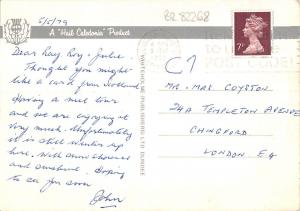 5/5/79
BR 82268
A "Hail Caledonia" Product
Dear Ray, Roy & Julie.
Thought you might
like a card from Scotland
Having a nice tour
and we are enjoying it
very much. Unfortunately
it is still winter up
here. With snow showers
and sunshine. Hoping
to see you soon
John
WHITEHOLME (PUBLISHERS) LTD DUNDEE
TO USE
POST CODE
7P
C7
MR + MRS COYSTON
24A TEMPLETON AVENUE
CHINGFORD
LONDON E4